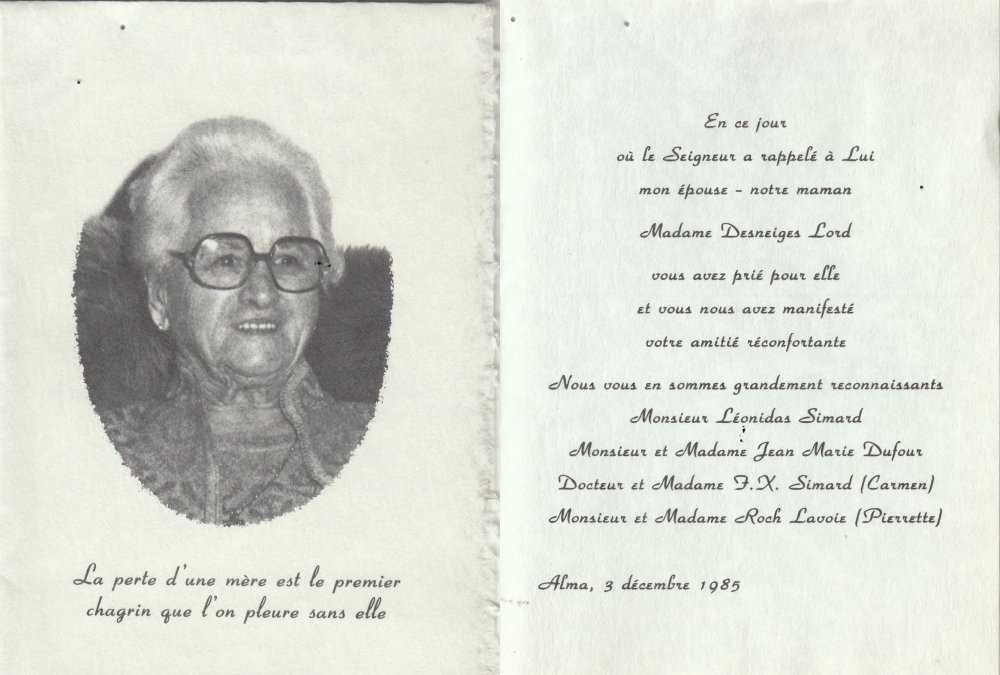 La perte d'une mère est le premier
chagrin que l'on pleure sans elle
En ce jour
où le Seigneur a rappelé à Lui
mon épouse - notre maman
Madame Desneiges Lord
vous avez prié pour elle
et vous nous avez manifesté
votre amitié réconfortante
Nous vous en sommes grandement reconnaissants
Monsieur Léonidas Simard
Monsieur et Madame Jean Marie Dufour
Docteur et Madame F.X. Simard (Carmen)
Monsieur et Madame Roch Lavoie (Pierrette)
Alma, 3 décembre 1985